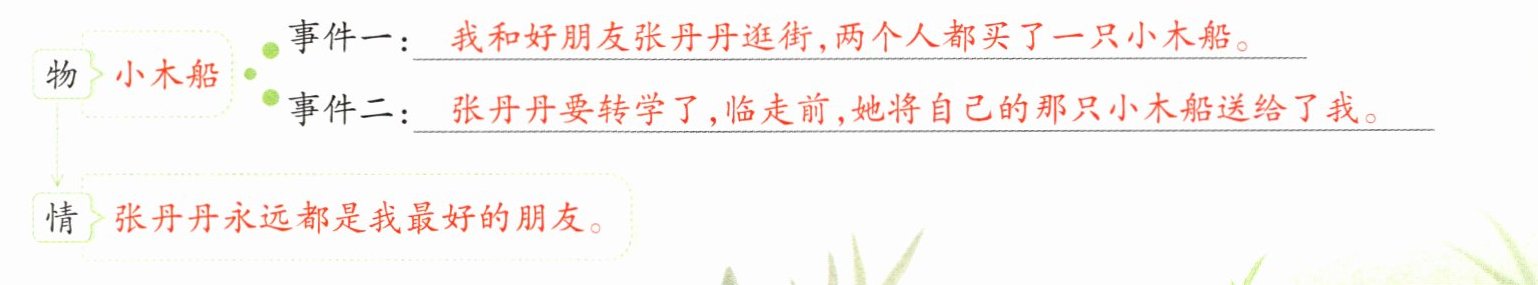 事件一：我和好朋友张丹丹逛街,两个人都买了一只小木船。
物 小木船
事件二：张丹丹要转学了,临走前,她将自己的那只小木船送给了我。
情 张丹丹永远都是我最好的朋友。